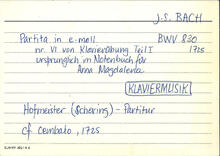 J.S. BACH
Partita in e-moll BWV 830
nr. VI von Klavierübung Teil I 1725
ursprünglich im Notenbuch für
Anna Magdalena
KLAVIERMUSIK
Hofmeister (Schering) - Partitur
cf Cembalo, 1725